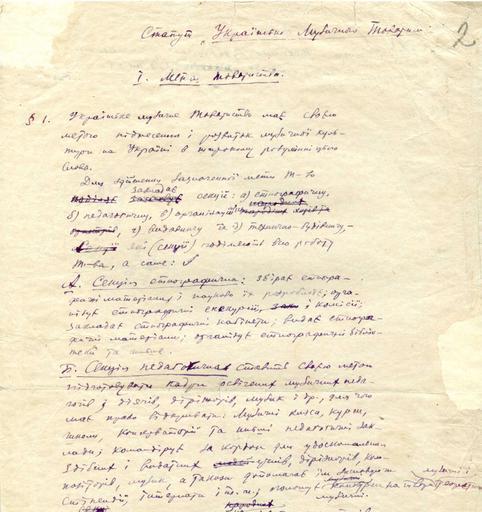 2
Статут Українське Музичного Товариш
І. Мета товариства.
§ 1. Українське музичне Товариство має своєю
метою піднесення і розвиток музичної куль-
тури на Україні в широкому розумінні цього
слова.
Для здійснення зазначеної мети Т-во
закладає секції: а) етнографичну,
б) педагогичну, в) організації
г) видавничу та д) технично-будівничу,
(секції) поділяють всю роботу
Т-ва, а саме:
А. Секція етнографична: збірає етногра-
фичні матеріали, і науково їх розробляє; орга-
нізує етнографичні екскурсії, і комісії;
закладає етнографичні кабінети; видає етногра-
фичні матеріали; організує етнографичні бібліо-
теки та инше.
Б. Секція педагогичная ставить своєю метою
підготовувати кадри освічених музичних педа-
гогів, діячів, дірігорів, музик і др., для чого
має право відкривати: музичні класи, курси,
школи, консерваторії та инші педагогичні зак-
лади; командірує за кордон для удосконалення
здібних і видатних учнів, дірігорів, ком-
позіторів, музик, а також допомагає їм
стіпендії, інтернати і т. и;
музичні і